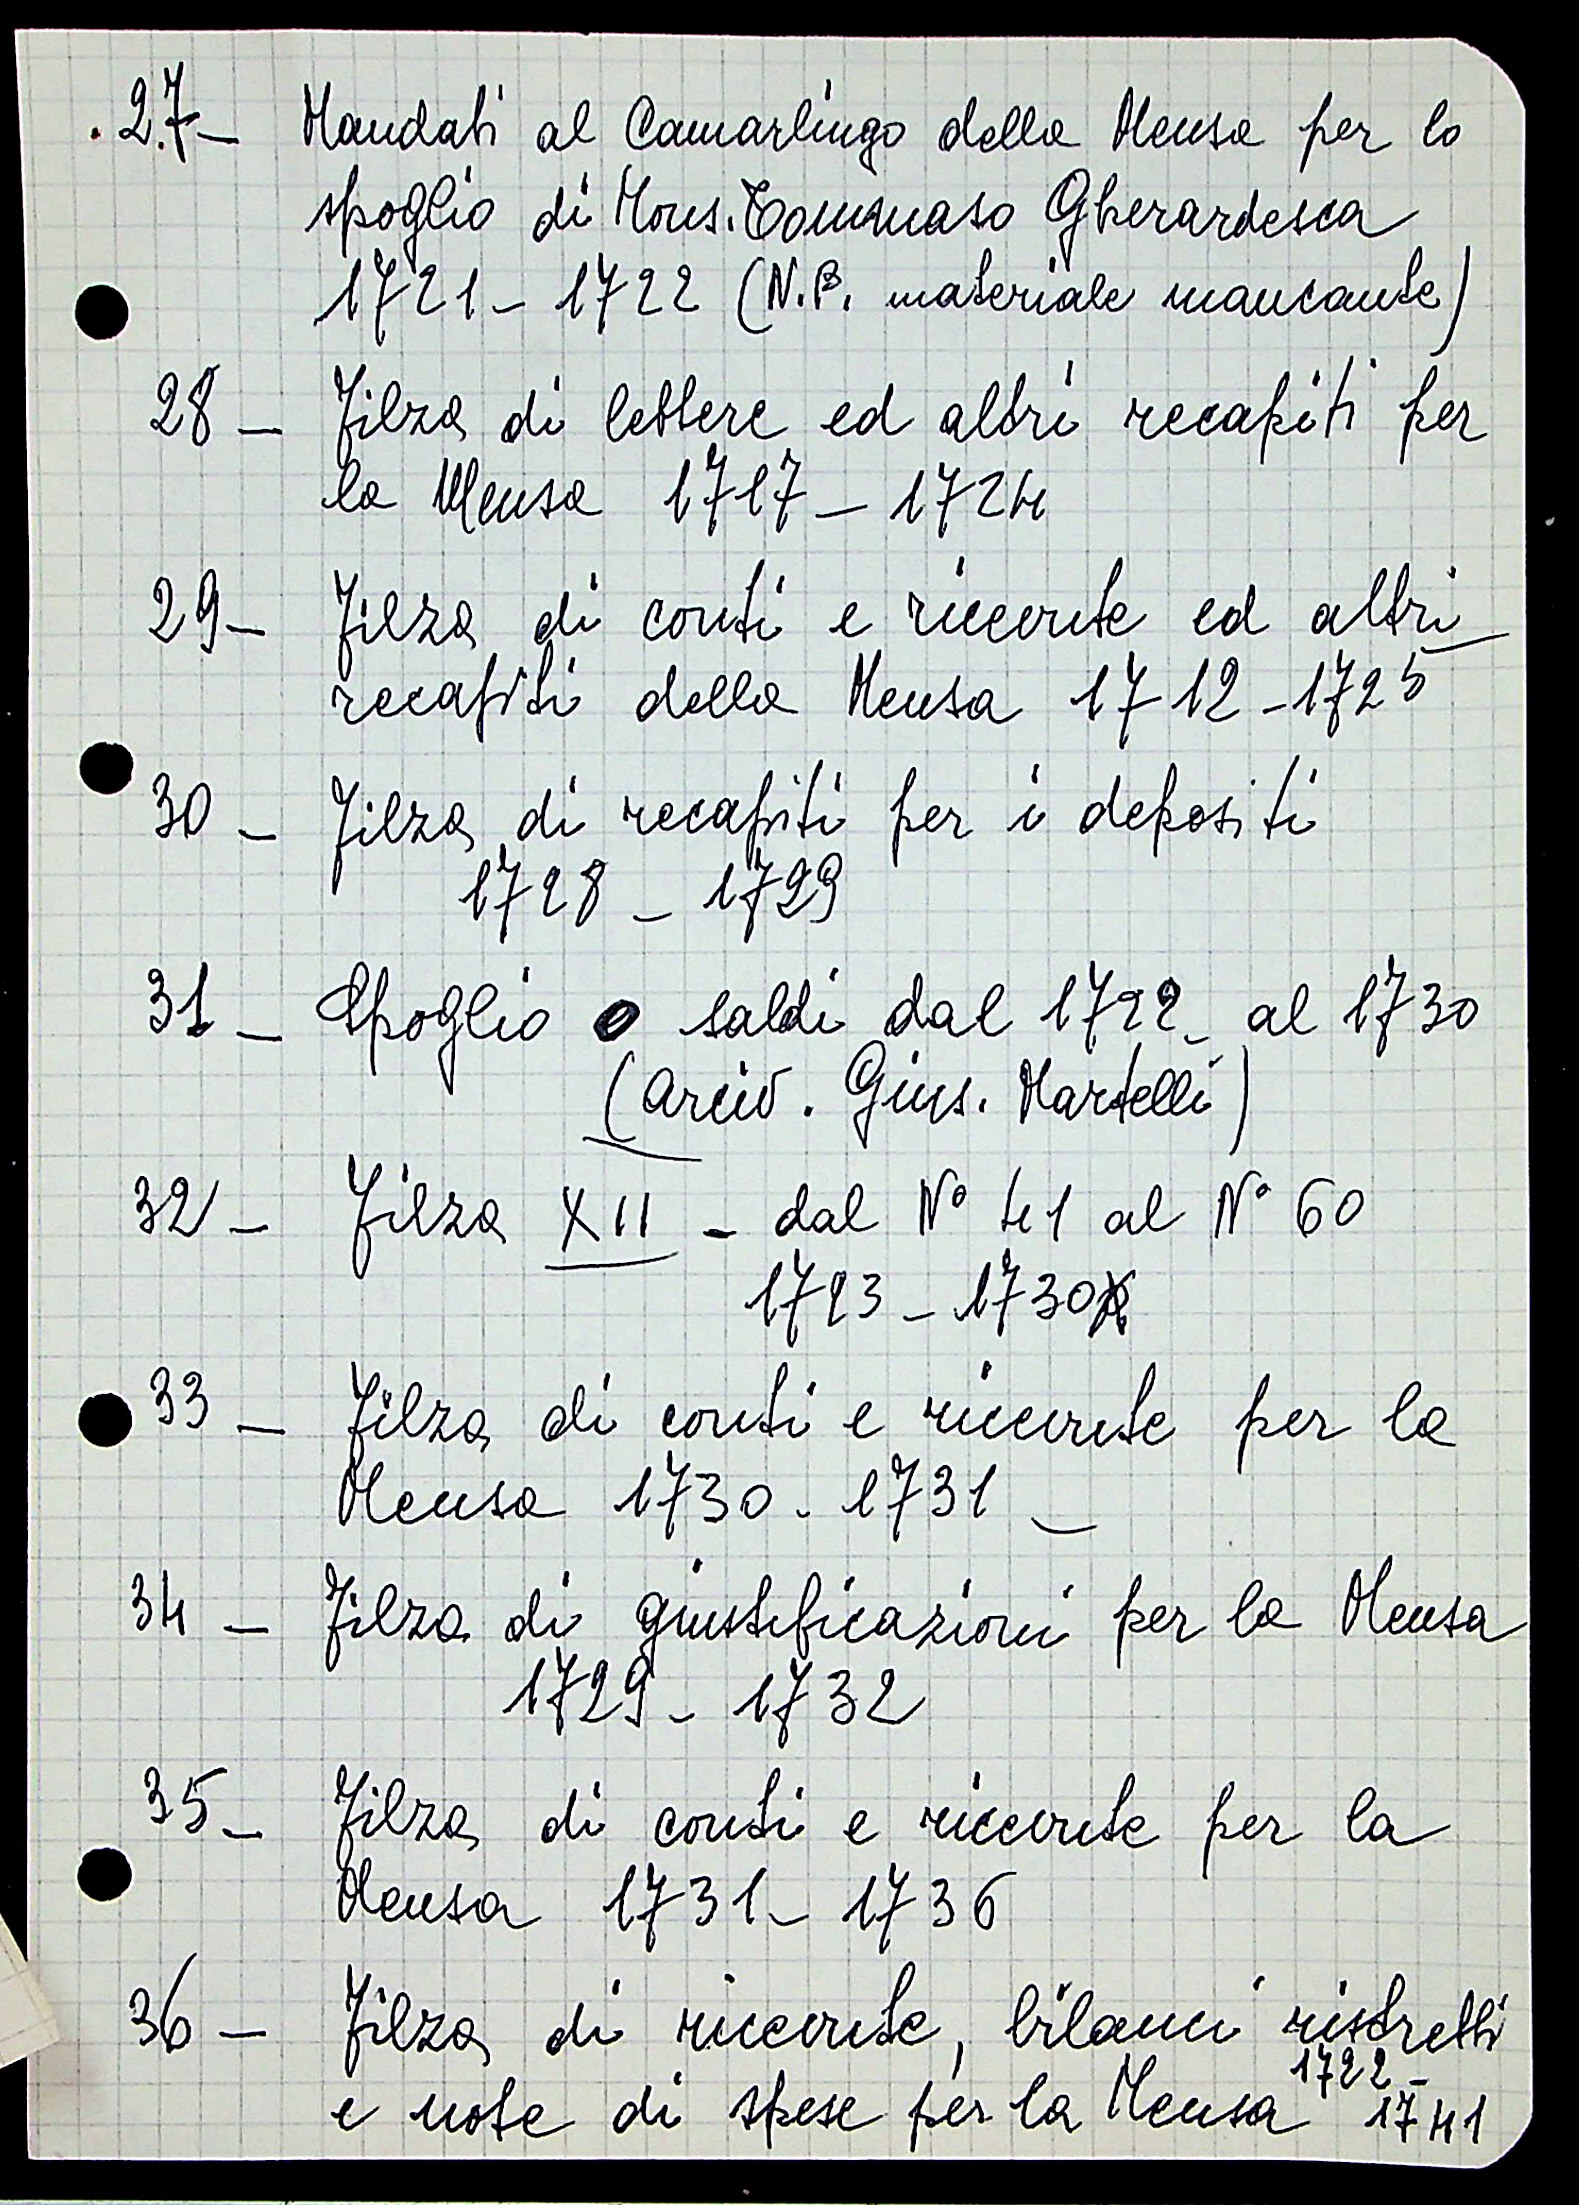 27 - Mandati al Camarlingo della Mensa per lo
spoglio di Mons. Tommaso Gherardesca
1721 - 1722 (N.B. materiale mancante)
28 - Filza di lettere ed altri recapiti per
la Mensa 1717 - 1724
29 - Filza di conti e ricevute ed altri
recapiti della Mensa 1712 - 1725
30 - Filza di recapiti per i depositi
1728 - 1729
31 - Spoglio o saldi dal 1722 al 1730
(Arciv. Gius. Martelli)
32 - Filza XII - dal N° 41 al N° 60
1723 - 1730
33 - Filza di conti e ricevute per la
Mensa 1730 - 1731 -
34 - Filza di giustificazioni per la Mensa
1729 - 1732
35 - Filza di conti e ricevute per la
Mensa 1731 - 1736
36 - Filza di ricevute, bilanci ristretti
e note di spese per la Mensa 1722 -
1741